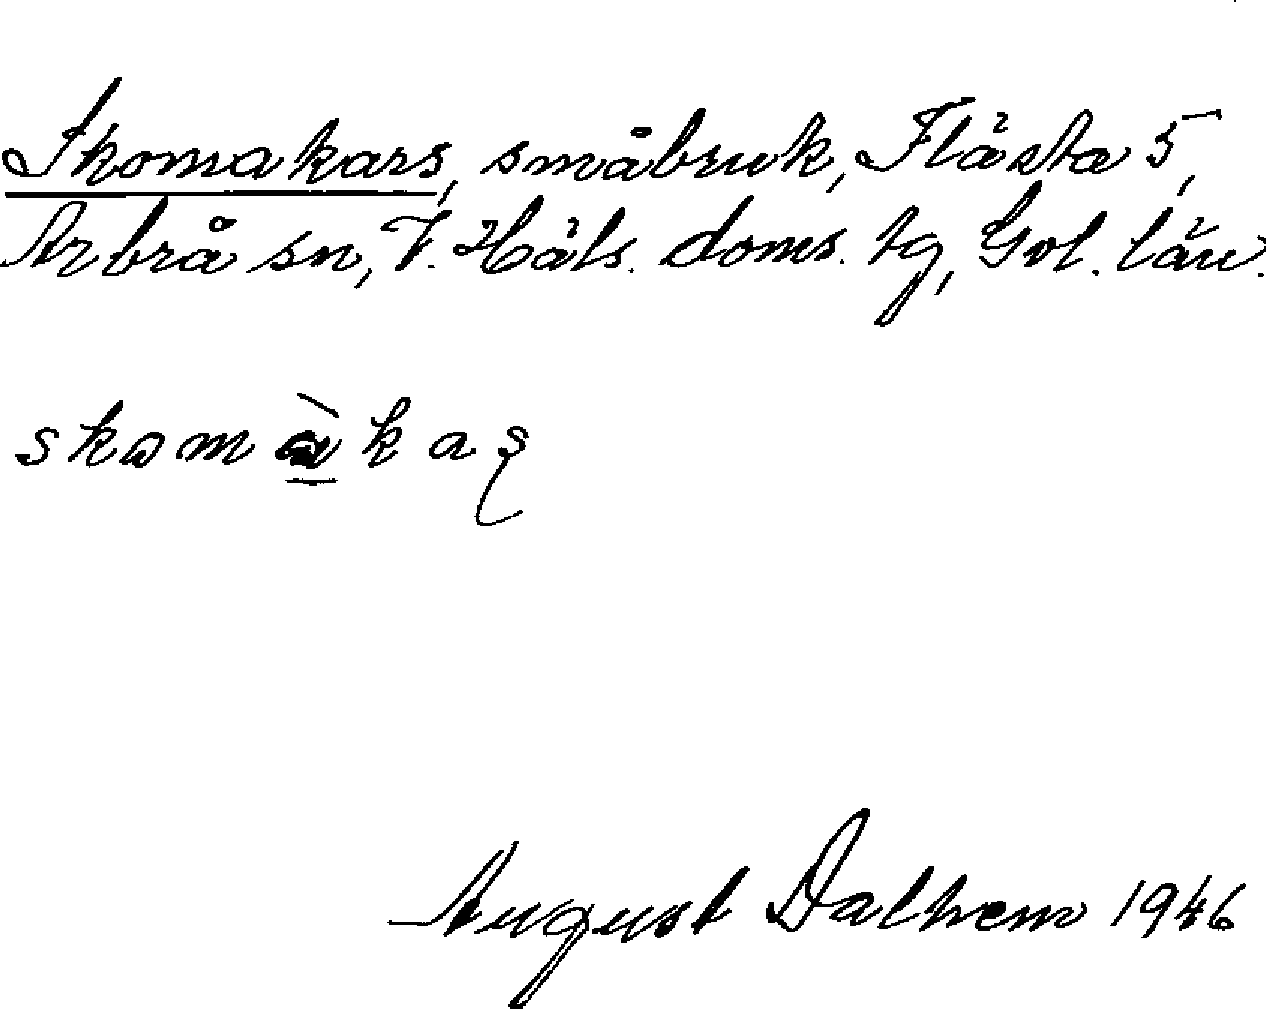 Skomakars, småbruk, Flästa 5,
Arbrå sn, V. Häls. doms. tg, Gvl. län.
skomàkaş
August Dalhem 1946